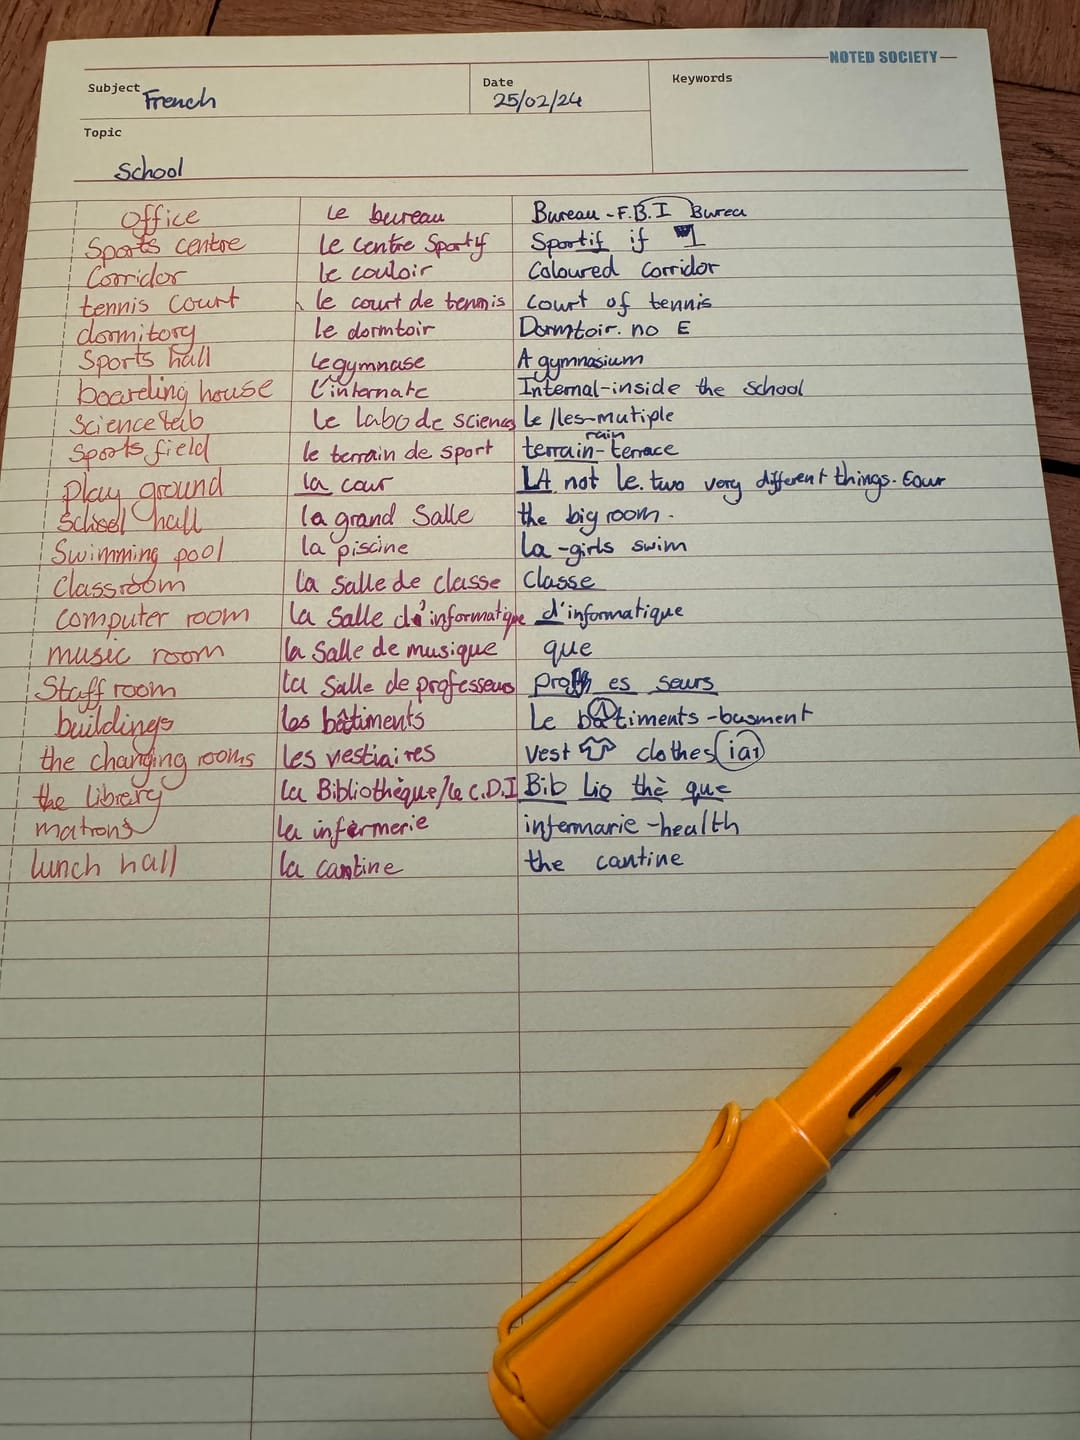 NOTED SOCIETY
Subject French
Date 25/02/24
Keywords
Topic
School
Office le bureau Bureau - F.B.I Burea
Sports centre le centre Sportif Sportif if 1
Corridor le couloir Coloured corridor
tennis court le court de tennis court of tennis
dormitory le dormtoir Dormtoir. no E
Sports hall le gymnase A gymnasium
boarding house l'internate Internal-inside the school
Science lab le labo de sciences le/les-mutiple
rain
Sports field le terrain de sport terrain-terrace
play ground la cour LA not le. two very different things. Cour
School hall la grand Salle the big room.
Swimming pool la piscine la -girls swim
Classroom la Salle de classe Classe
computer room la Salle d'informatique d'informatique
music room la Salle de musique que
Staff room la Salle de professeurs proff es seurs
buildings les bâtiments le bâtiments -busment
the changing rooms les vestiaires Vest clothes iai
the library la Bibliothèque/le C.D.I Bib lio thè que
matrons la infermerie infermarie -health
lunch hall la cantine the cantine